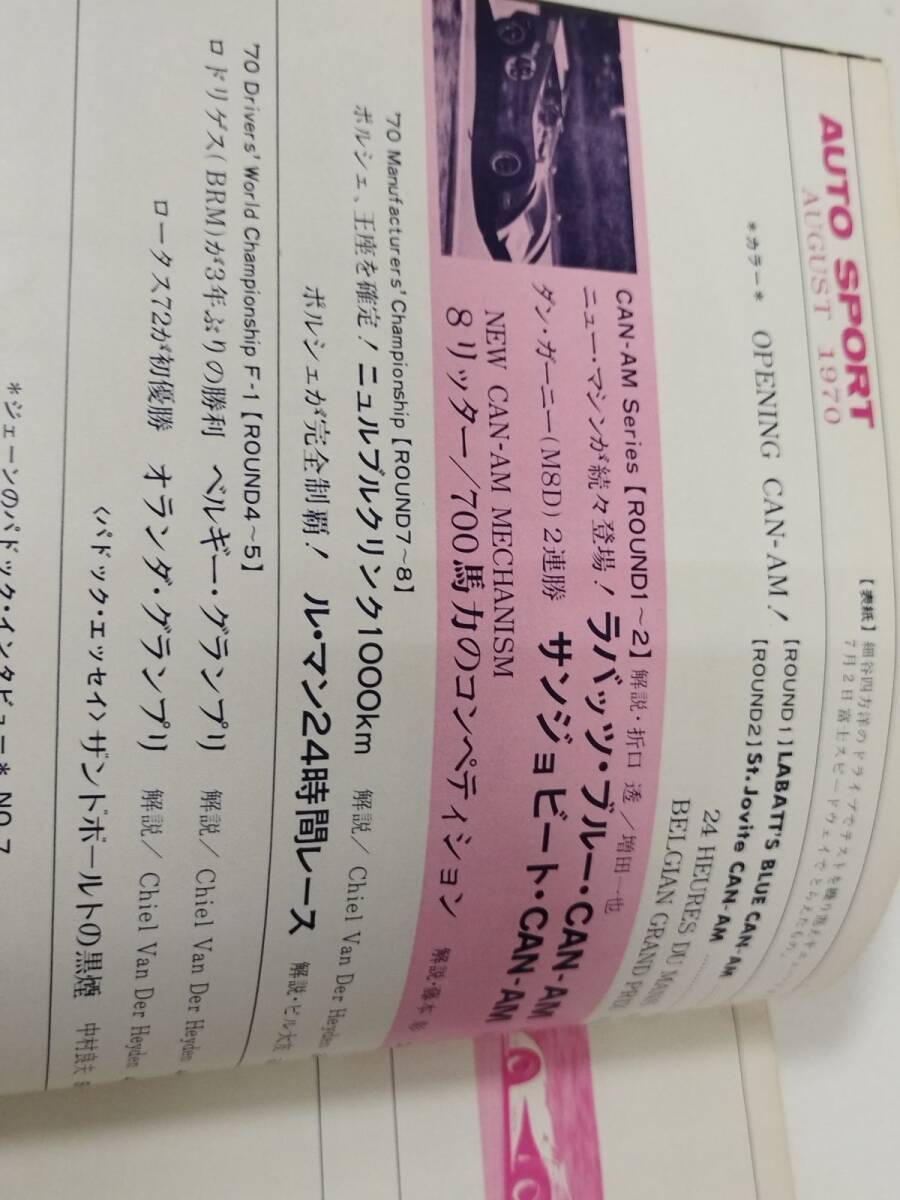 AUTO SPORT
AUGUST 1970
【表紙】細谷四方洋のドライブでテストを繰り返す
7月2日富士スピードウェイでとらえたもの。
*カラー* OPENING CAN-AM!
【ROUND 1】LABATT'S BLUE CAN-AM
【ROUND2】St. Jovite CAN-AM
24 HEURES DU MANS
BELGIAN GRAND PRIX
CAN-AM Series【ROUND1~2】解説・折口 透/増田一也
ニュー・マシンが続々登場! ラバッツ・ブルー・CAN-AM
ダン・ガーニー(M8D)2連勝 サンジョビート・CAN-AM
NEW CAN-AM MECHANISM
8リッター/700馬力のコンペティション 解説・藤本
'70 Manufacturers' Championship【ROUND7~8】
ポルシェ、王座を確定! ニュルブルクリンク1000km 解説/Chiel Van Der Heyden
ポルシェが完全制覇! ル・マン24時間レース 解説・ビル大友
'70 Drivers' World Championship F-1【ROUND4~5】
ロドリゲス(BRM)が3年ぶりの勝利 ベルギー・グランプリ 解説/Chiel Van Der Heyden
ロータス72が初優勝 オランダ・グランプリ 解説/Chiel Van Der Heyden
〈パドック・エッセイ〉ザントボールトの黒煙 中村良夫
*ジェーンのパドック・インタビュー* NO.7